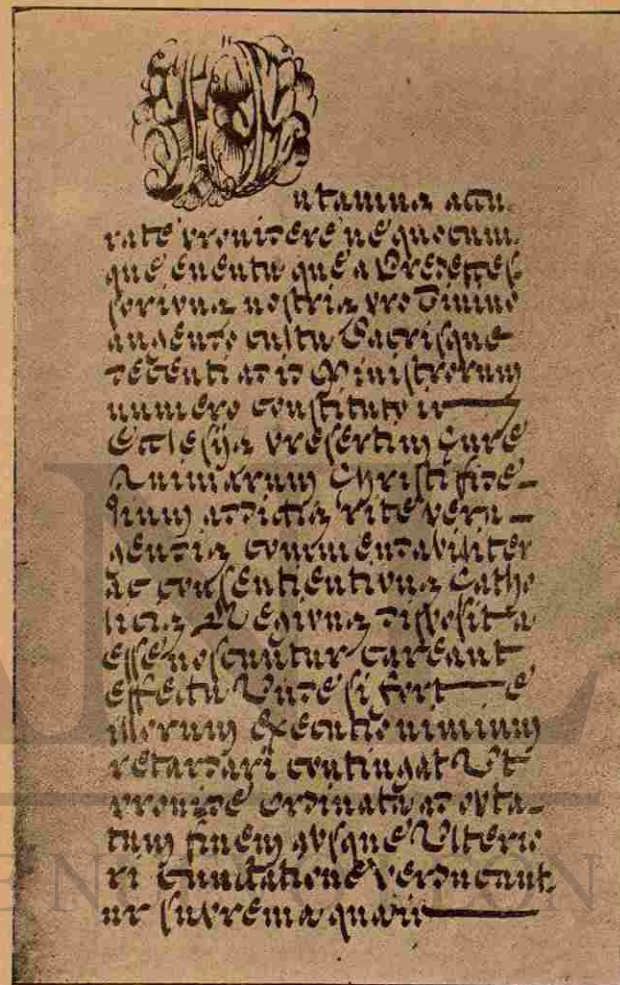 utamus accu-
rate providere ne quocum-
que eventu que a Predecces-
soribus nostris pro Divino
augendo cultu Sacrisque
decenti ad id Ministrorum
numero constituto in
Ecclesijs presertim Cure
Animarum Christi fide-
lium addictis rite pera-
gendis commendabiliter
ac consentientibus Catho
licis Regibus disposita
esse noscuntur careant
effectu Unde si fort e
illorum executione nimium
retardari contingat Ut
provide ordinata ad opta-
tum finem absque Ulterio
ri cunctatione perducant
ur suprema quam